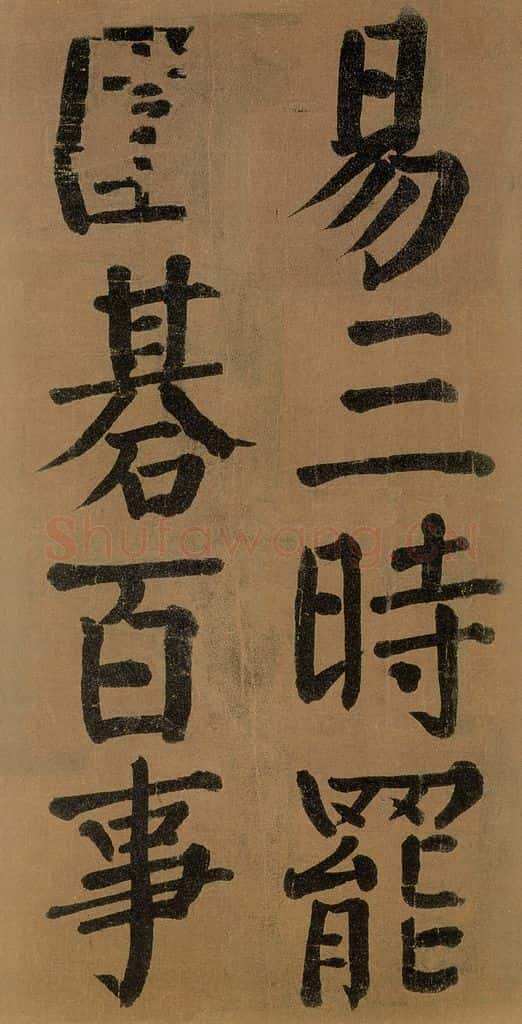 易三時罷
圍碁百事
Shufawang.CN